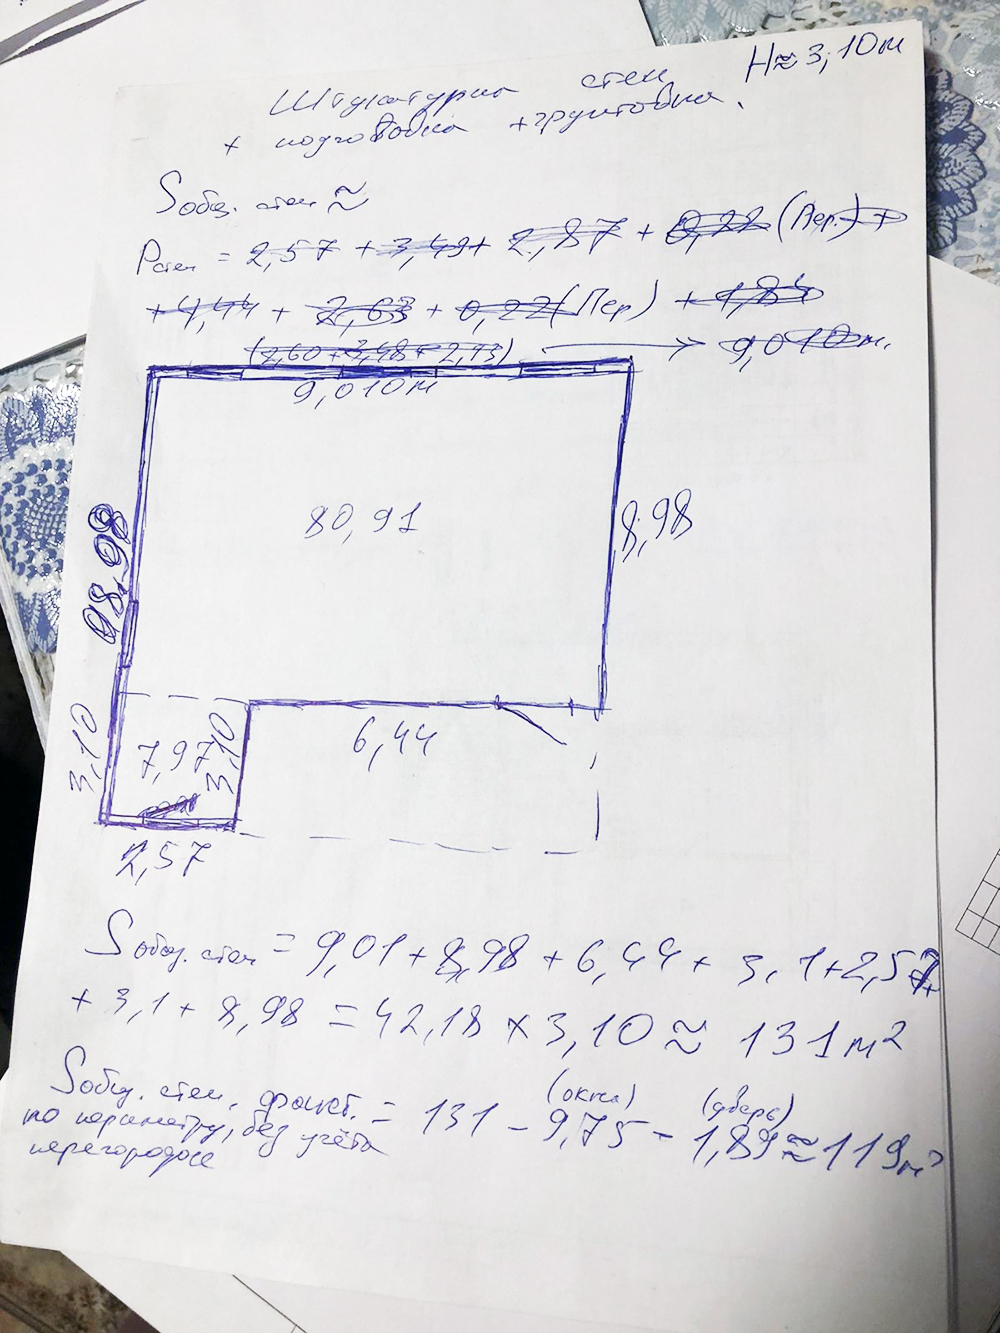 H≈3,10м
Штукатурка стен
+ подготовка +грунтовка.
Sобщ. стен ≈
Pстен = 2,57 + 3,49 + 2,87 + 0,22 (Пер.) +
+ 4,44 + 2,63 + 0,22 (Пер) + 1,84
(2,60+3,48+2,93) → 9,010м.
9,010м
80,91
8,98
8,98
3,10
7,97
3,10
6,44
2,57
Sобщ. стен = 9,01+8,98+6,44+3,1+2,57+
+3,1+8,98 = 42,18 × 3,10 ≈ 131м²
Sобщ. стен. факт. = 131 - 9,75 - 1,89 ≈ 119м²
(окна) (дверь)
по периметру, без учёта
перегородок